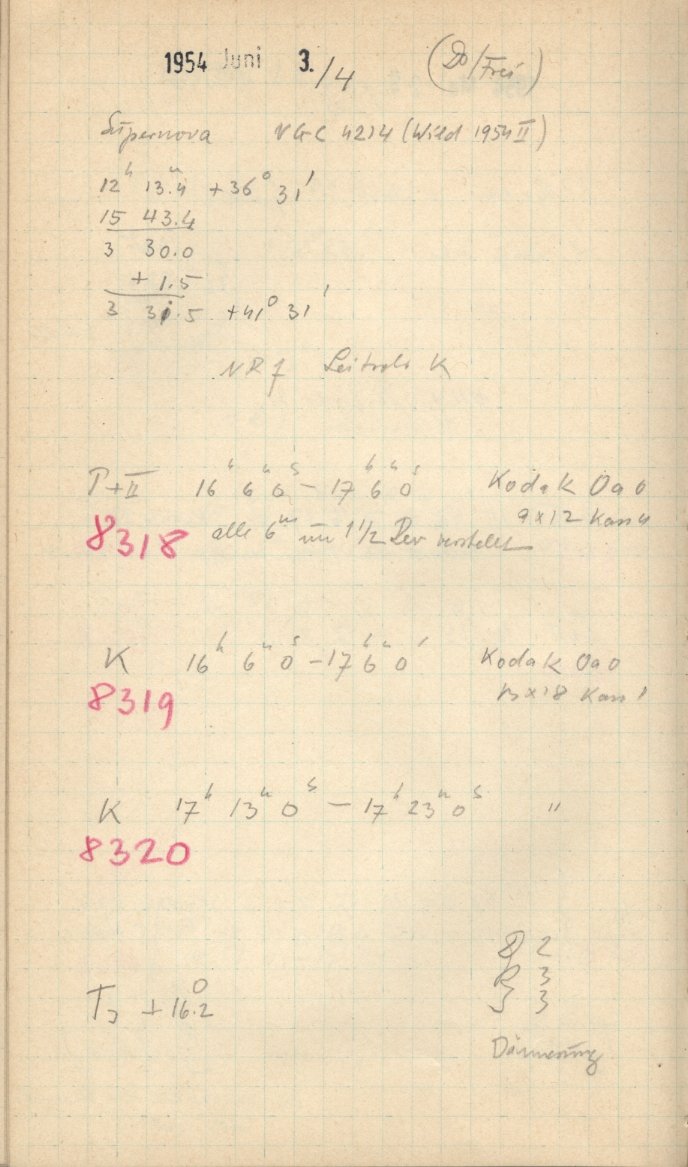 1954 Juni 3./4 (Do/Frei)
Supernova NGC 4214 (Wild 1954 II)
12h 13m.4 +36° 31'
15 43.4
3 30.0
+ 1.5
3 31.5 +41° 31'
K
P+II 16h 6m 0s - 17h 6m 0s Kodak Oa0
9x12 Kass 4
8318 alle 6m um 1 1/2 Rev verstellt
K 16h 6m 0s - 17h 6m 0s Kodak Oa0
13x18 Kass 1
8319
K 17h 13m 0s - 17h 23m 0s "
8320
D 2
R 3
3
+16.2°
Dämmerung